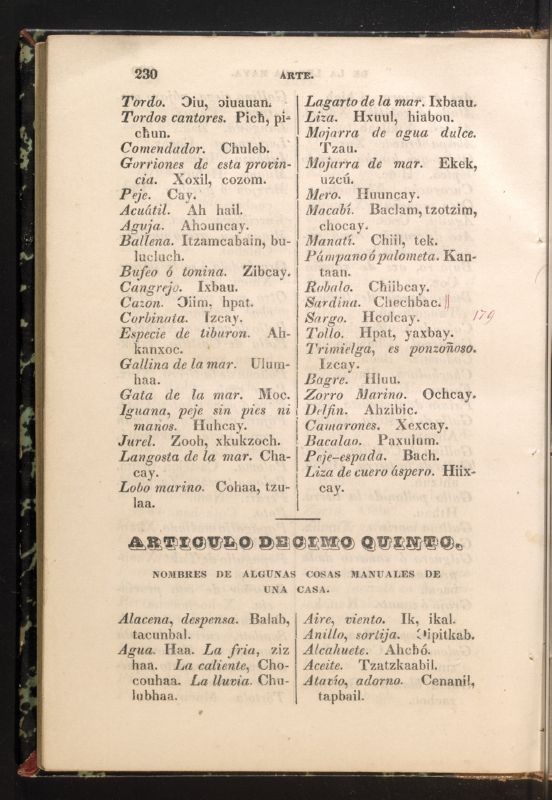 230 ARTE.
Tordo. Ɔiu, ɔiuauan.
Tordos cantores. Picħ, pi-
cħun.
Comendador. Chuleb.
Gorriones de esta provin-
cia. Xoxil, cozom.
Peje. Cay.
Acuátil. Ah hail.
Aguja. Ahɔuncay.
Ballena. Itzamcabain, bu-
lucluch.
Bufeo ó tonina. Zibcay.
Cangrejo. Ixbau.
Cazon. Ɔiim, hpat.
Corbinata. Izcay.
Especie de tiburon. Ah-
kanxoc.
Gallina de la mar. Ulum-
haa.
Gata de la mar. Moc.
Iguana, peje sin pies ni
manos. Huhcay.
Jurel. Zooh, xkukzoch.
Langosta de la mar. Cha-
cay.
Lobo marino. Cohaa, tzu-
laa.
Lagarto de la mar. Ixbaau.
Liza. Hxuul, hiabou.
Mojarra de agua dulce.
Tzau.
Mojarra de mar. Ekek,
uzcú.
Mero. Huuncay.
Macabí. Baclam, tzotzim,
chocay.
Manatí. Chiil, tek.
Pámpano ó palometa. Kan-
taan.
Robalo. Chiibcay.
Sardina. Chechbac. ||
Sargo. Hcolcay. 179
Tollo. Hpat, yaxbay.
Trimielga, es ponzoñoso.
Izcay.
Bagre. Hluu.
Zorro Marino. Ochcay.
Delfin. Ahzibic.
Camarones. Xexcay.
Bacalao. Paxulum.
Peje-espada. Bach.
Liza de cuero áspero. Hiix-
cay.
ARTICULO DECIMO QUINTO.
NOMBRES DE ALGUNAS COSAS MANUALES DE
UNA CASA.
Alacena, despensa. Balab,
tacunbal.
Agua. Haa. La fria, ziz
haa. La caliente, Cho-
couhaa. La lluvia. Chu-
lubhaa.
Aire, viento. Ik, ikal.
Anillo, sortija. Ɔipitkab.
Alcahuete. Ahchó.
Aceite. Tzatzkaabil.
Atavío, adorno. Cenanil,
tapbail.